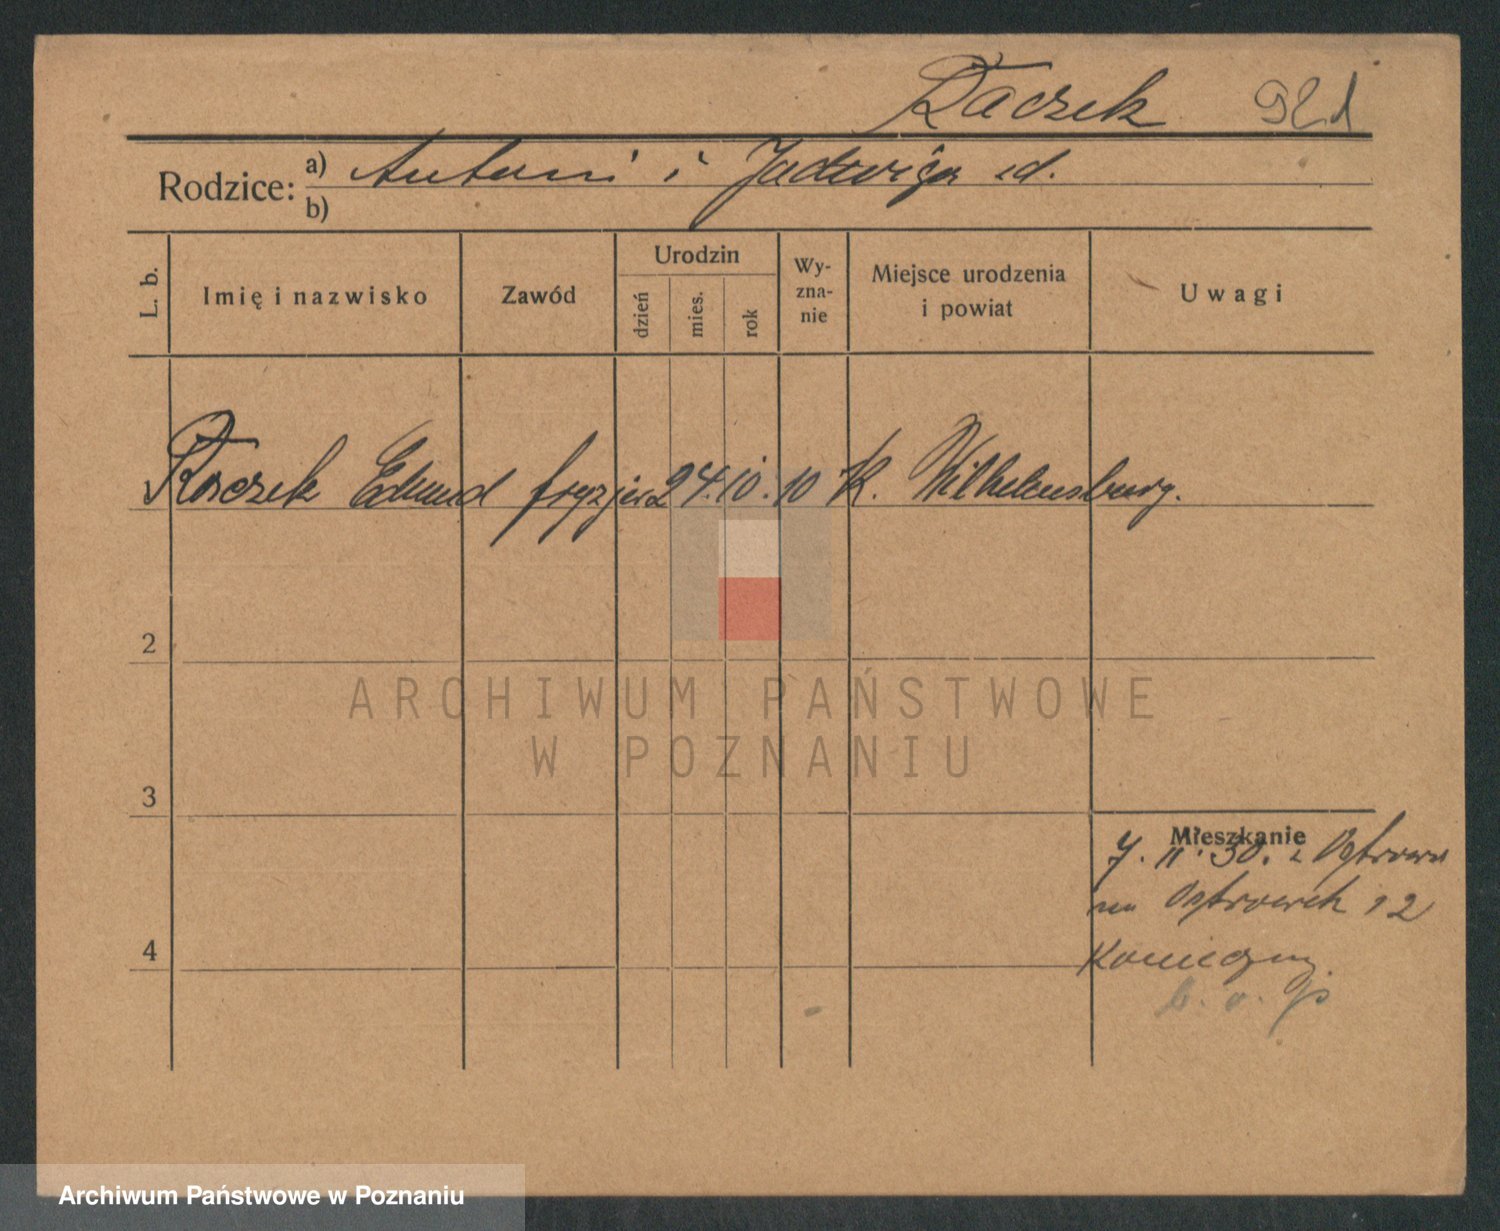 Raczek 921
Rodzice: a) Antoni i Jadwiga id.
b)
L. b. Imię i nazwisko Zawód Urodzin dzień mies. rok Wy-zna-nie Miejsce urodzenia i powiat Uwagi
Raczek Edmund fryzjer 24. 10. 10 K. Wilhelmsburg.
2
3
4
Mieszkanie
7. 11. 30. z Ostrowa
na Ostrówek 12
ARCHIWUM PAŃSTWOWE
W POZNANIU
Archiwum Państwowe w Poznaniu